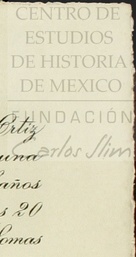 CENTRO DE
ESTUDIOS
DE HISTORIA
DE MEXICO
FUNDACIÓN
Carlos Slim
Ortiz
años
s 20
lomas